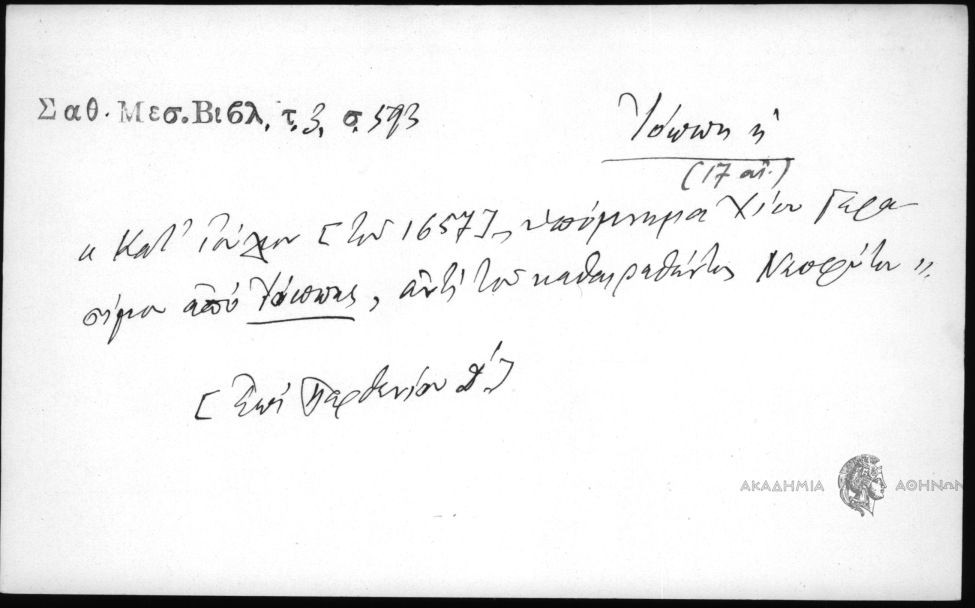 Σαθ. Μεσ. Βιβλ, τ. 3, σ. 593
Ἰόππη ἡ
(17 αἰ.)
« Κατ' Ἰούλιον [τοῦ 1657], ὑπόμνημα Χίου Γερα-
σίμου ἀπὸ Ἰόππης, ἀντὶ τοῦ καθαιρεθέντος Νεοφύτου ».
[Ἐπὶ Παρθενίου Δ΄]
ΑΚΑΔΗΜΙΑ ΑΘΗΝΩΝ